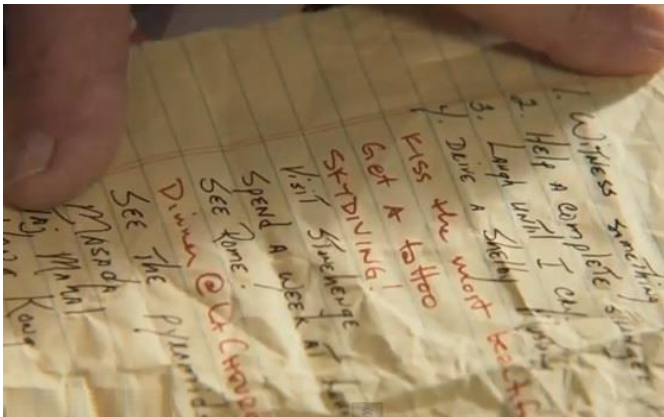 1. Witness something
2. Help A complete stranger
3. Laugh until I cry.
4. Drive A Shelby
Kiss the most beautif
Get A tattoo
SKYDIVING!
Visit Stonehenge
Spend A week AT
See Rome.
Dinner @ La
See the pyramids
Masada
Taj Mahal
Kong